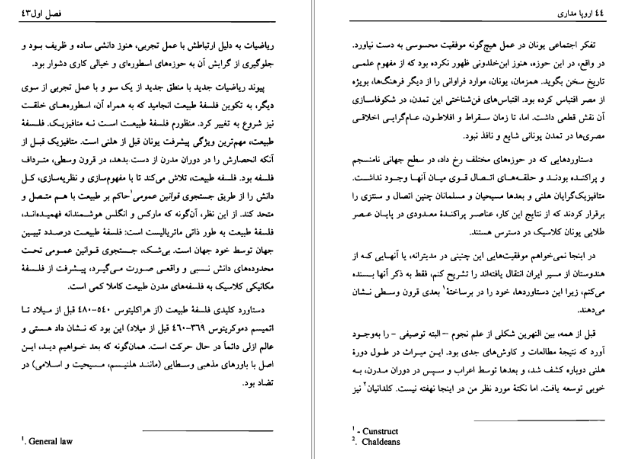 فصل اول ۴۳
ریاضیات به دلیل ارتباطش با عمل تجربی، هنوز دانشی ساده و ظریف بود و
جلوگیری از گرایش آن به حوزه‌های اسطوره‌ای و خیالی کاری دشوار بود.
پیوند ریاضیات جدید با منطق جدید از یک سو و با عمل تجربی از سوی
دیگر، به تکوین فلسفۀ طبیعت انجامید که به همراه آن، اسطوره‌های خلقت
نیز شروع به تغییر کرد. منظورم فلسفۀ طبیعت است نه متافیزیک. فلسفۀ
طبیعت، مهم‌ترین ویژگی پیشرفت یونان قبل از هلنی است. متافیزیک قبل از
آنکه انحصارش را در دوران مدرن از دست بدهد، در قرون وسطی، مترادف
فلسفه بود. فلسفه طبیعت، تلاش می‌کند تا با مفهوم‌سازی و نظریه‌سازی، کل
دانش را از طریق جستجوی قوانین عمومی¹ حاکم بر طبیعت با هم متصل و
متحد کند. از این نظر، آن‌گونه که مارکس و انگلس هوشمندانه فهمیده‌اند،
فلسفۀ طبیعت به طور ذاتی ماتریالیست است: فلسفۀ طبیعت درصدد تبیین
جهان توسط خود جهان است. بی‌شک، جستجوی قوانین عمومی تحت
محدوده‌های دانش نسبی و واقعی صورت می‌گیرد، پیشرفت از فلسفۀ
مکانیکی کلاسیک به فلسفه‌های مدرن طبیعت کاملا کمی است.
دستاورد کلیدی فلسفۀ طبیعت (از هراکلیتوس ۵۴۰-۴۸۰ قبل از میلاد تا
اتمیسم دموکریتوس ۳۶۹-۴۶۰ قبل از میلاد) این بود که نشان داد هستی و
عالم ازلی دائماً در حال حرکت است. همان‌گونه که بعد خواهیم دید، این
اصل با باورهای مذهبی وسطایی (مانند هلنیسم، مسیحیت و اسلامی) در
تضاد بود.
¹. General law
۴۴ اروپا مداری
تفکر اجتماعی یونان در عمل هیچ‌گونه موفقیت محسوسی به دست نیاورد.
در واقع، در این حوزه، هنوز ابن‌خلدونی ظهور نکرده بود که از مفهوم علمی
تاریخ سخن بگوید. همزمان، یونان، موارد فراوانی را از دیگر فرهنگ‌ها، بویژه
از مصر اقتباس کرده بود. اقتباس‌های فن‌شناختی این تمدن، در شکوفاسازی
آن نقش قطعی داشت. اما، تا زمان سقراط و افلاطون، عام‌گرایی اخلاقی
مصری‌ها در تمدن یونانی شایع و نافذ نبود.
دستاوردهایی که در حوزه‌های مختلف رخ داد، در سطح جهانی نامنسجم
و پراکنده بودند و حلقه‌های اتصال قوی میان آنها وجود نداشت.
متافیزیک‌گرایان هلنی و بعدها مسیحیان و مسلمانان چنین اتصال و سنتزی را
برقرار کردند که از نتایج این کار، عناصر پراکندۀ معدودی در پایان عصر
طلایی یونان کلاسیک در دسترس هستند.
در اینجا نمی‌خواهم موفقیت‌هایی این چنینی در مدیترانه، یا آنهایی که از
هندوستان از مسیر ایران انتقال یافته‌اند را تشریح کنم، فقط به ذکر آنها بسنده
می‌کنم، زیرا این دستاوردها، خود را در برساختۀ¹ بعدی قرون وسطی نشان
می‌دهند.
قبل از همه، بین النهرین شکلی از علم نجوم – البته توصیفی – را به‌وجود
آورد که نتیجۀ مطالعات و کاوش‌های جدی بود. این میراث در طول دورۀ
هلنی دوباره کشف شد، و بعدها توسط اعراب و سپس در دوران مدرن، به
خوبی توسعه یافت. اما نکتۀ مورد نظر من در اینجا نهفته نیست. کلدانیان² نیز
¹ - Cunstruct
². Chaldeans